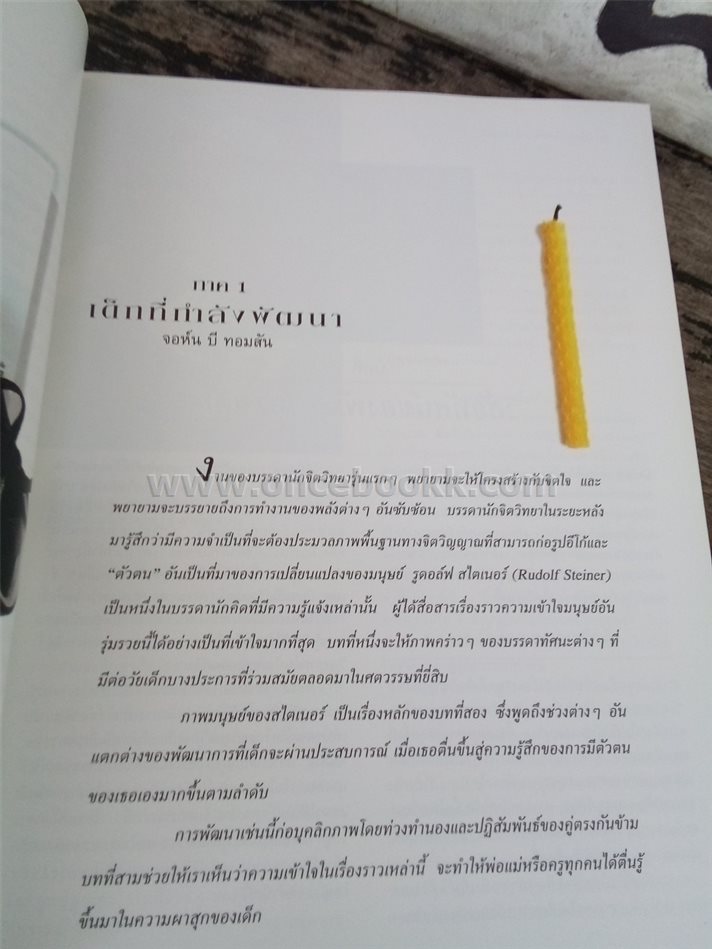 ภาค 1
เด็กที่กำลังพัฒนา
จอห์น บี ทอมสัน
งานของบรรดานักจิตวิทยารุ่นแรกๆ พยายามจะให้โครงสร้างกับจิตใจ และ
www.oncebookk.com
พยายามจะบรรยายถึงการทำงานของพลังต่างๆ อันซับซ้อน บรรดานักจิตวิทยาในระยะหลัง
มารู้สึกว่ามีความจำเป็นที่จะต้องประมวลภาพพื้นฐานทางจิตวิญญาณที่สามารถก่อรูปอีโก้และ
“ตัวตน” อันเป็นที่มาของการเปลี่ยนแปลงของมนุษย์ รูดอล์ฟ สไตเนอร์ (Rudolf Steiner)
เป็นหนึ่งในบรรดานักคิดที่มีความรู้แจ้งเหล่านั้น ผู้ได้สื่อสารเรื่องราวความเข้าใจมนุษย์อัน
รุ่มรวยนี้ได้อย่างเป็นที่เข้าใจมากที่สุด บทที่หนึ่งจะให้ภาพคร่าวๆ ของบรรดาทัศนะต่างๆ ที่
มีต่อวัยเด็กบางประการที่ร่วมสมัยตลอดมาในศตวรรษที่ยี่สิบ
ภาพมนุษย์ของสไตเนอร์ เป็นเรื่องหลักของบทที่สอง ซึ่งพูดถึงช่วงต่างๆ อัน
แตกต่างของพัฒนาการที่เด็กจะผ่านประสบการณ์ เมื่อเธอตื่นขึ้นสู่ความรู้สึกของการมีตัวตน
ของเธอเองมากขึ้นตามลำดับ
การพัฒนาเช่นนี้ก่อบุคลิกภาพโดยท่วงทำนองและปฏิสัมพันธ์ของคู่ตรงกันข้าม
บทที่สามช่วยให้เราเห็นว่าความเข้าใจในเรื่องราวเหล่านี้ จะทำให้พ่อแม่หรือครูทุกคนได้ตื่นรู้
ขึ้นมาในความผาสุกของเด็ก